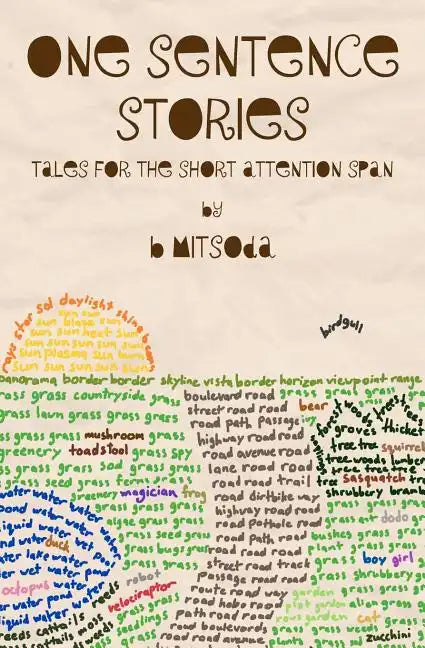 ONE SENTENCE
STORIES
TALES FOR THE SHORT ATTENTION SPAN
by
b MITSOda
rays star sol daylight shine beam
sun sun
sun blaze sun
sun sun heet sun
sun sun sun sun sun
sun plasma sun burn
sun sun sun sun sun
birdgull
panorama border border skyline vista border horizon viewpoint range
grass grass countryside grass
boulevard road
grass grass grass grass
grass lawn grass grass grass
street road road
bear
road path passage
grass grass mushroom grass
highway road road
groves thicket
greenery toadstool grass spy
road avenue road
tree tree squirrel
grass grass sod grass grass
lane road road
tree woods timber
grass seed grass fern
road road trail
tree sasquatch tree
water water water
greenery magician frog
road dirtbike way
shrubbery bramb
pond water water
grass grass grass
highway road road
grass ant dodo
liquid water wet
algae grass grass
road pothole road
bushes grass grass
water duck
grass seed grass
road path road
boy girl
water lake water
grass bugs grass
road road road
grass shrubbery
water wet water
robot
street road track
octopus water
velociraptor
passage road road
garden
water pond water
grass grass
route road way
plot garden alien grass
liquid water water
road hobo road
rows garden cat
reeds cattails reeds
seedlings
path road road
grass grass weeds
cattails moss
grass grass
road boulevards
zucchini
road road avenue
plants grass sod